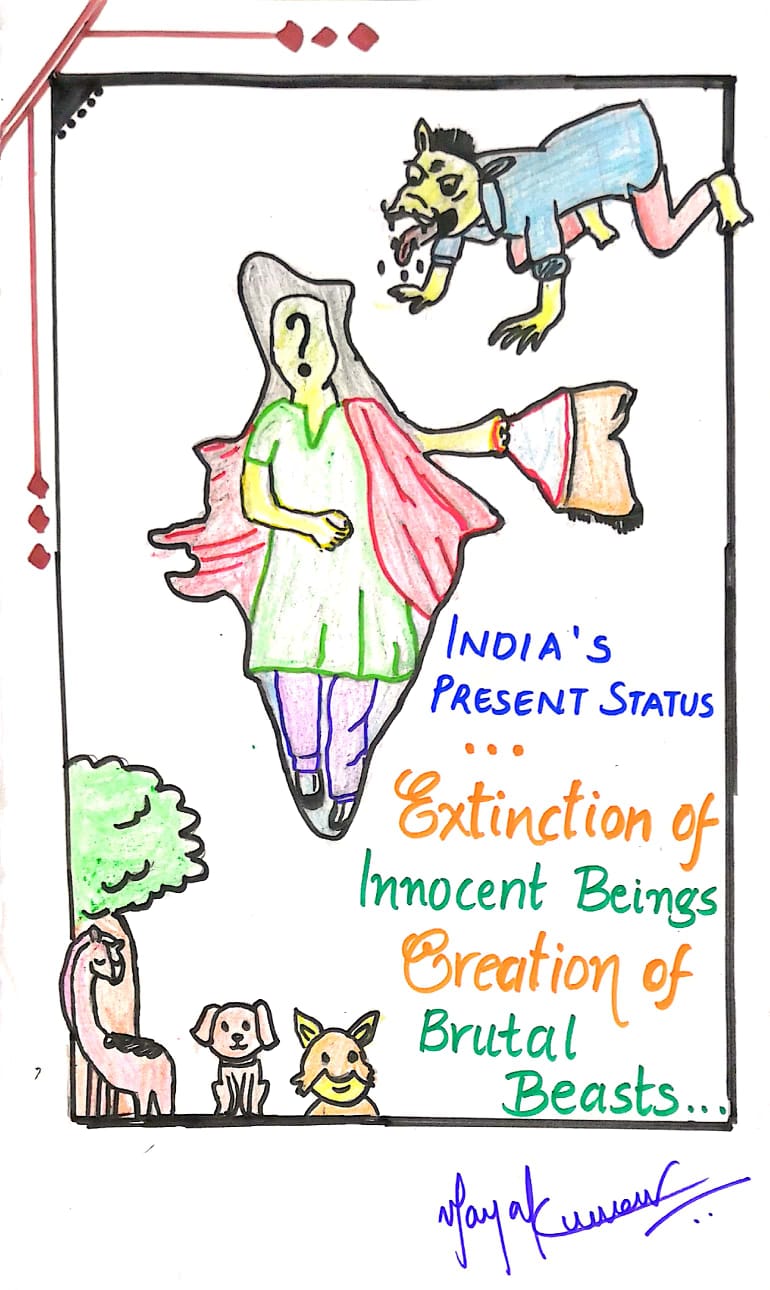 ?
INDIA'S
PRESENT STATUS
...
Extinction of
Innocent Beings
Creation of
Brutal
Beasts...